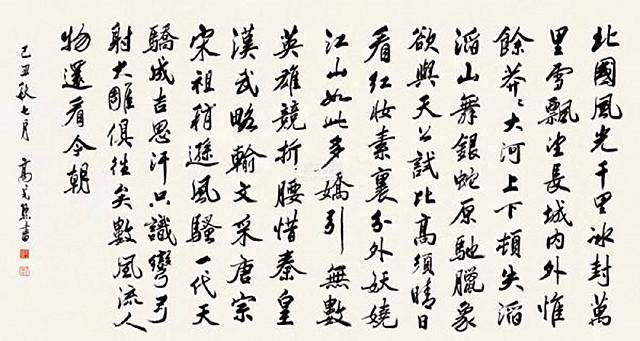 北國風光千里冰封萬
里雪飄望長城內外惟
餘莽々大河上下頓失滔
滔山舞銀蛇原馳臘象
欲與天公試比高須晴日
看紅妝素裹分外妖嬈
江山如此多嬌引無數
英雄競折腰惜秦皇
漢武略輸文采唐宗
宋祖稍遜風騷一代天
驕成吉思汗只識彎弓
射大雕俱往矣數風流人
物還看今朝
己丑秋七月 高書